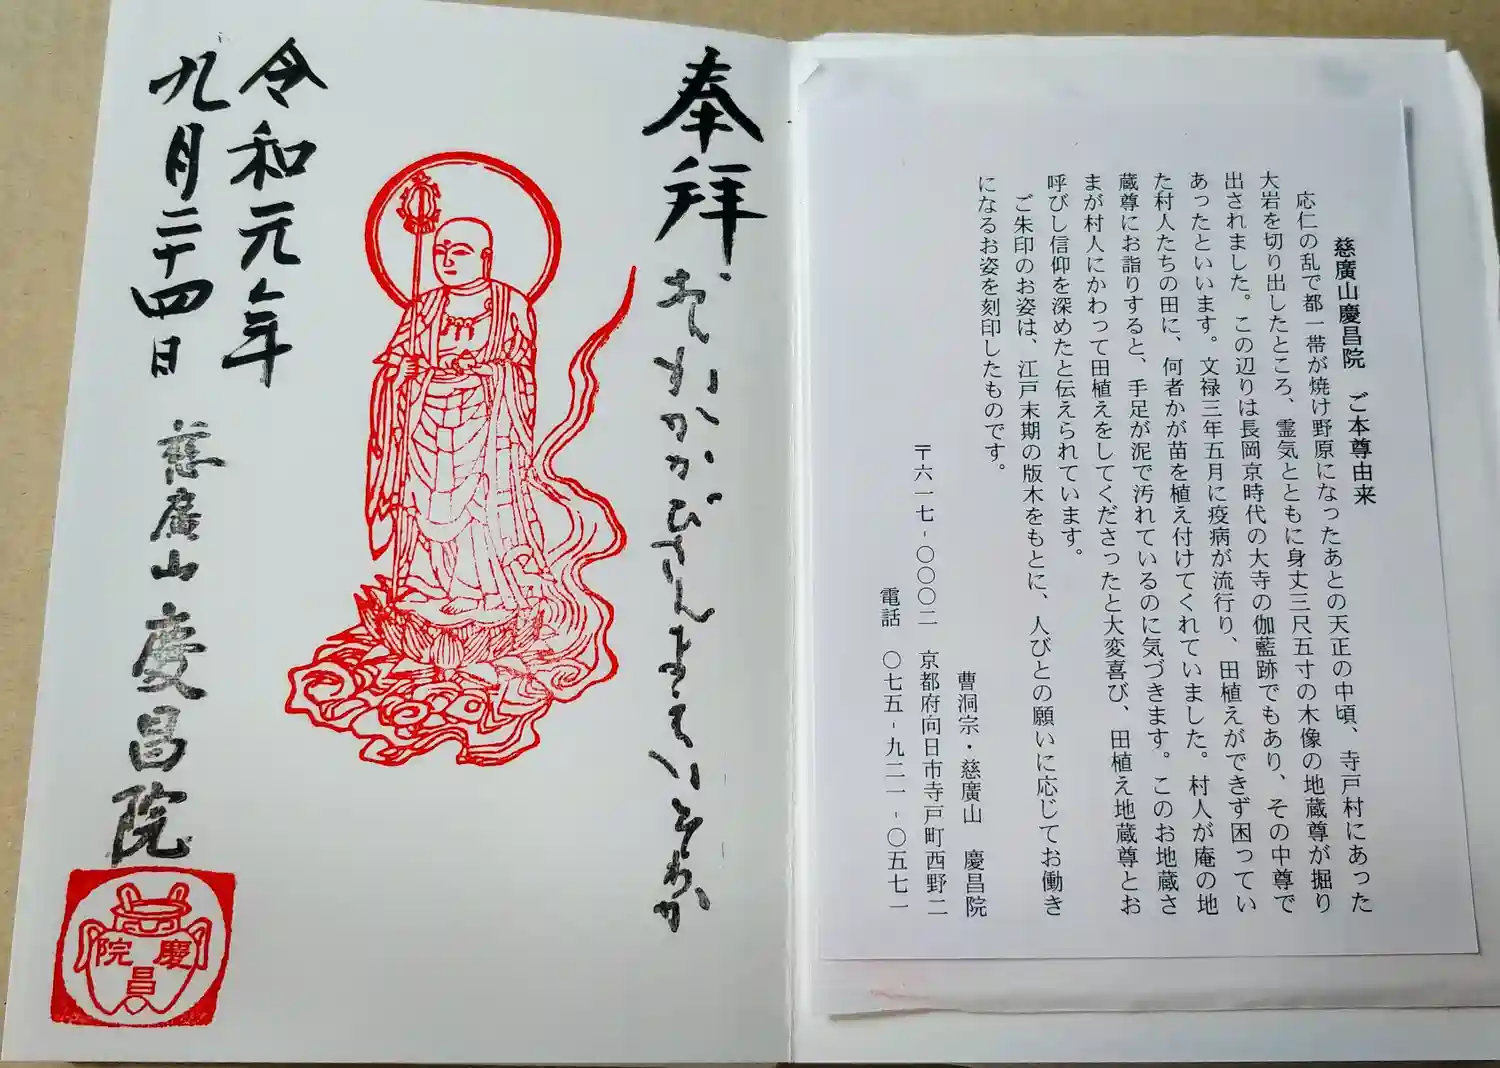 慈廣山慶昌院　ご本尊由来
応仁の乱で都一帯が焼け野原になったあとの天正の中頃、寺戸村にあった
大岩を切り出したところ、霊気とともに身丈三尺五寸の木像の地蔵尊が掘り
出されました。この辺りは長岡京時代の大寺の伽藍跡でもあり、その中尊で
あったといいます。文禄三年五月に疫病が流行り、田植えができず困ってい
た村人たちの田に、何者かが苗を植え付けてくれていました。村人が庵の地
蔵尊にお詣りすると、手足が泥で汚れているのに気づきます。このお地蔵さ
まが村人にかわって田植えをしてくださったと大変喜び、田植え地蔵尊とお
呼びし信仰を深めたと伝えられています。
ご朱印のお姿は、江戸末期の版木をもとに、人びとの願いに応じてお働き
になるお姿を刻印したものです。
曹洞宗・慈廣山　慶昌院
〒六一七-〇〇〇二　京都府向日市寺戸町西野二
電話　〇七五-九二一-〇五七一
奉拝
おんかかかびさんまえいそわか
令和元年
九月二十四日
慈廣山慶昌院
慶昌院